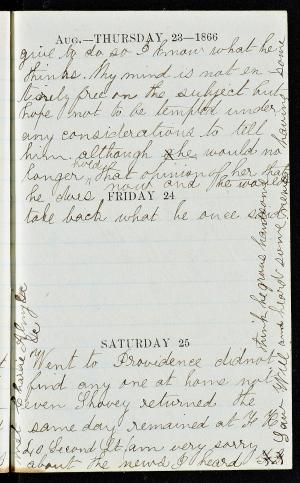 AUG.—THURSDAY, 23—1866
give to do so I know what he
thinks. My mind is not en-
tirely free on the subject but
hope not to be tempted under
any considerations to tell
him although he would no
longer hold that opinion of her that
he does now and he would
FRIDAY 24
take back what he once said
SATURDAY 25
Went to Providence did not
find any one at home not
even Shovey returned the
same day remained at F H
40 Second St I am very sorry
about the news I heard
think he grows handsome
Saw Will and heard some news having some